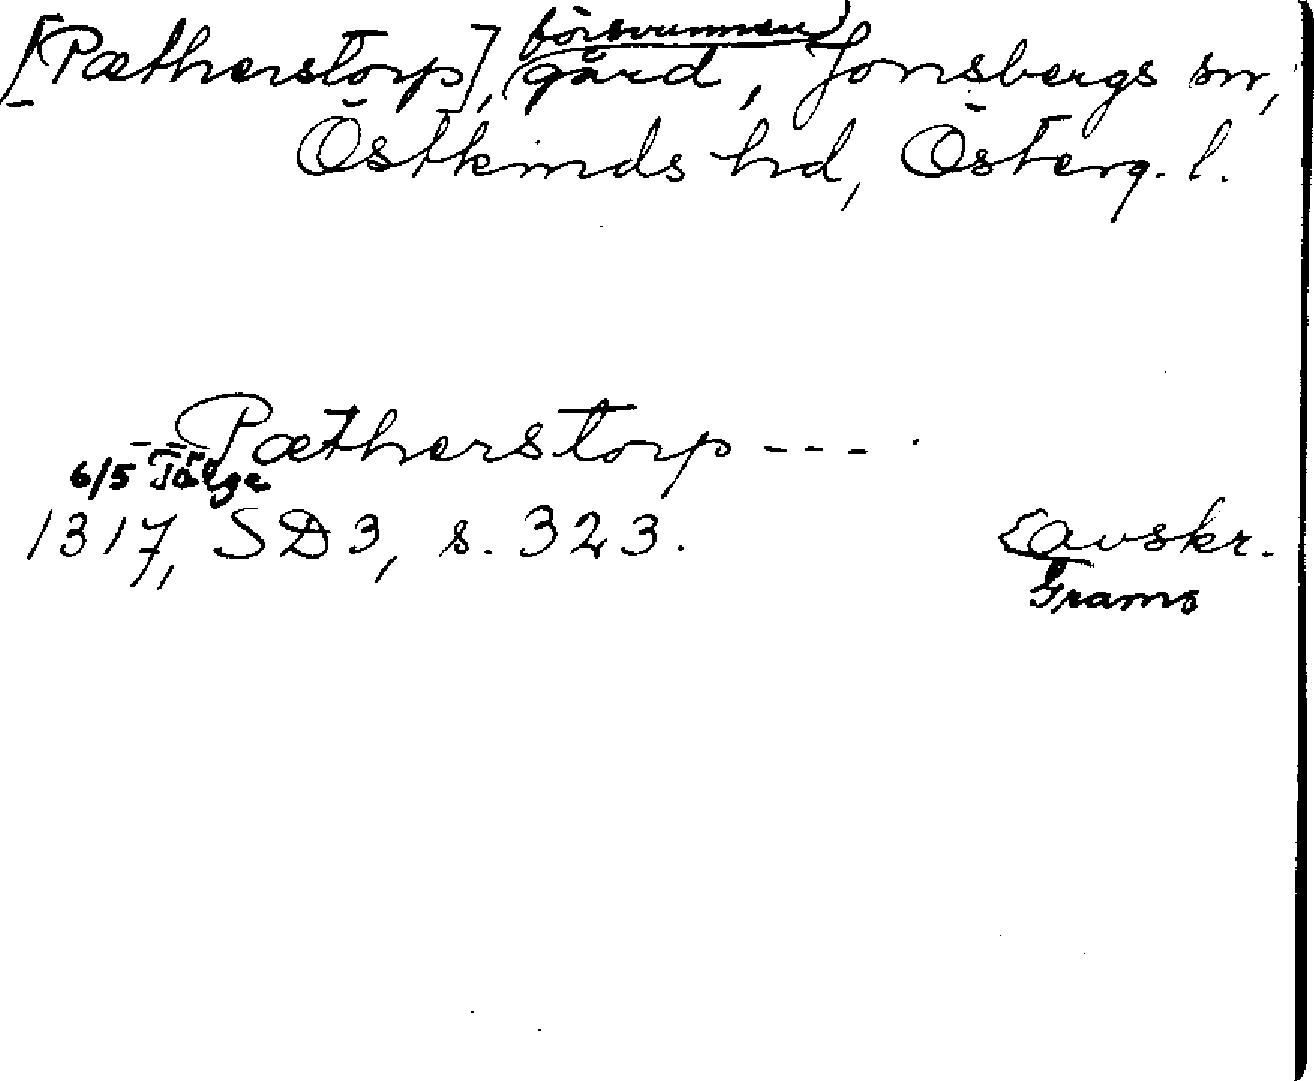 [Pætherstorp], försvunnen gård, Jonsbergs sn,
Östkinds hd, Österg. l.
- - Pætherstorp - - -
6/5 Tälge
1317, SD 3, s. 323. avskr.
Grams